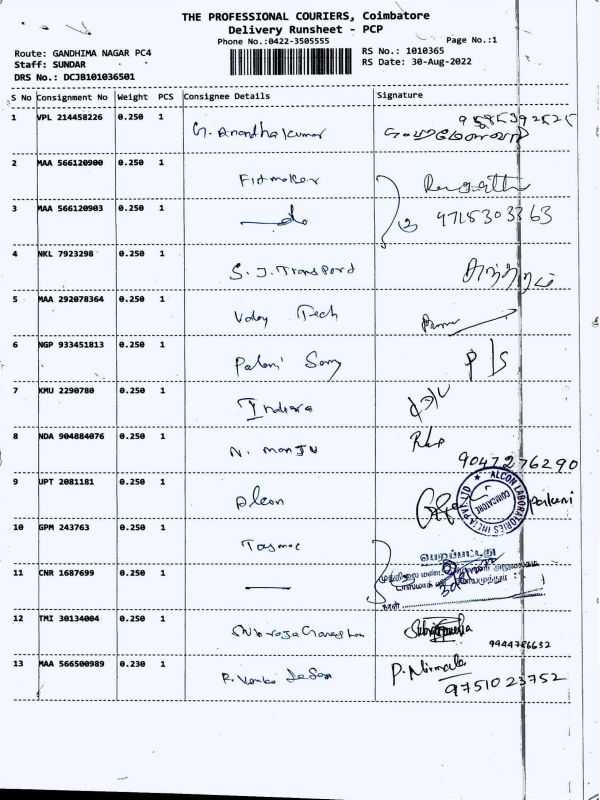 THE PROFESSIONAL COURIERS, Coimbatore
Delivery Runsheet - PCP
Phone No.:0422-3505555
Page No.:1
Route: GANDHIMA NAGAR PC4
RS No.: 1010365
Staff: SUNDAR
RS Date: 30-Aug-2022
DRS No.: DCJB101036501
S No Consignment No Weight PCS Consignee Details Signature
1 VPL 214458226 0.250 1 G. Anandhakumar 9585392525
2 MAA 566120900 0.250 1 Fitmaker
3 MAA 566120903 0.250 1 do 9715303363
4 NKL 7923298 0.250 1 S. J. Transport
5 MAA 292078364 0.250 1 Uday Tech
6 NGP 933451813 0.250 1 Palani Samy P/S
7 KMU 2290780 0.250 1 Indiara
8 NDA 904884076 0.250 1 N. manju 9047276290
9 UPT 2081181 0.250 1 Alcon
ALCON LABORATORIES INDIA PVT LTD
COIMBATORE
10 GPM 243763 0.250 1 Tasmac
11 CNR 1687699 0.250 1
12 TMI 30134004 0.250 1 9944786632
13 MAA 566500989 0.230 1 R. Venkadesan P. Nirmala
9751023752